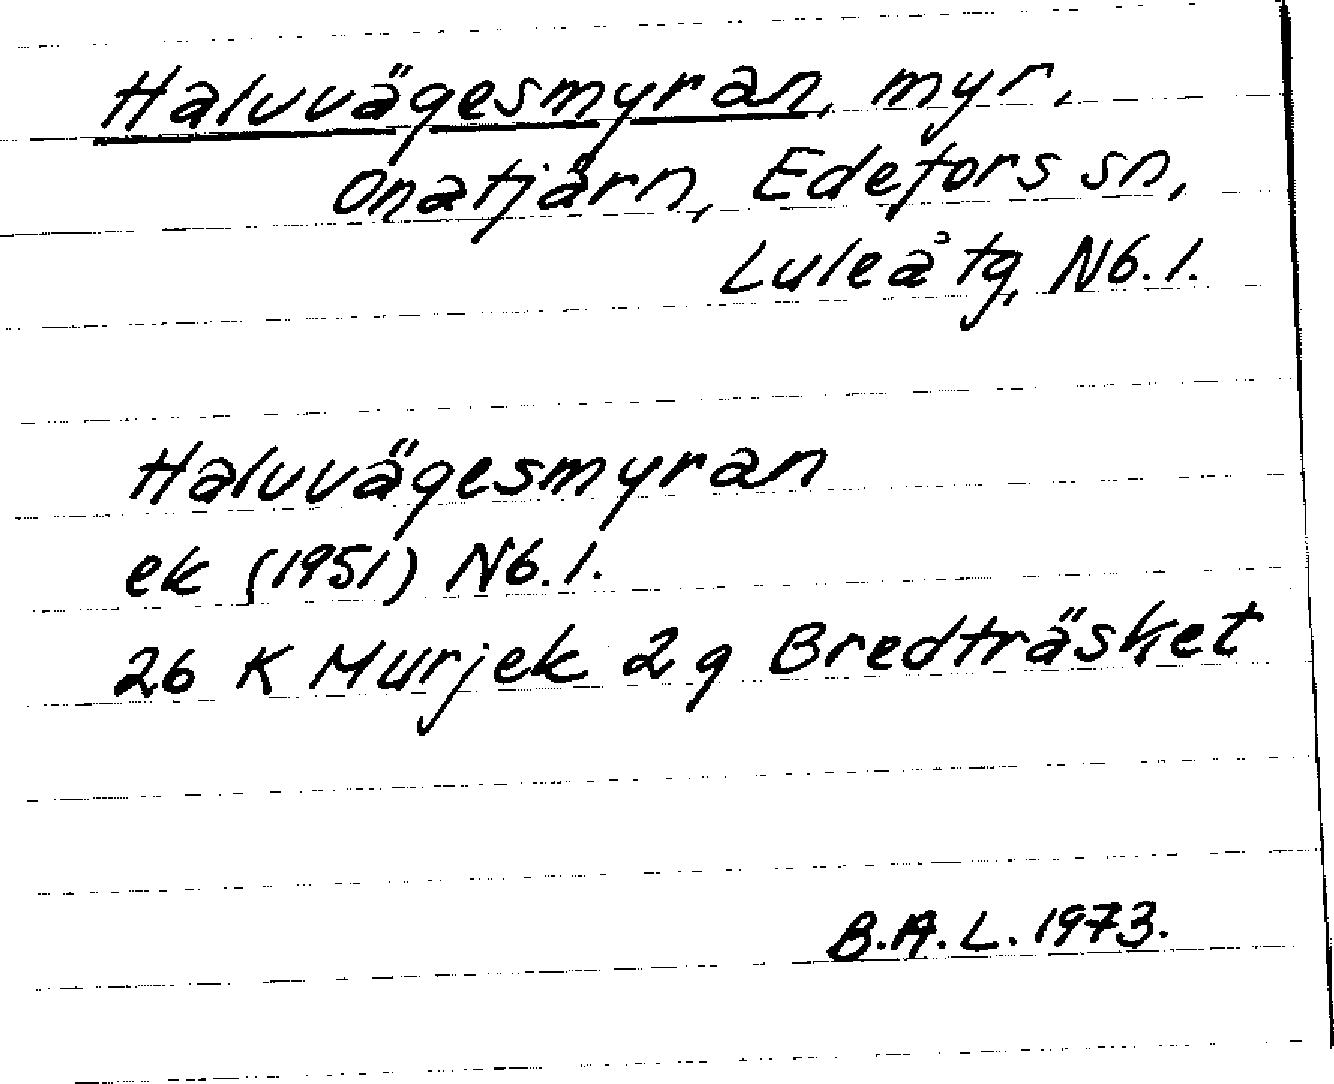 Haluvägesmyran, myr,
Onatjärn, Edefors sn,
Luleå tg, Nb. l.
Haluvägesmyran
ek (1951) Nb. l.
26 K Murjek 2 g Bredträsket
B.A.L. 1973.